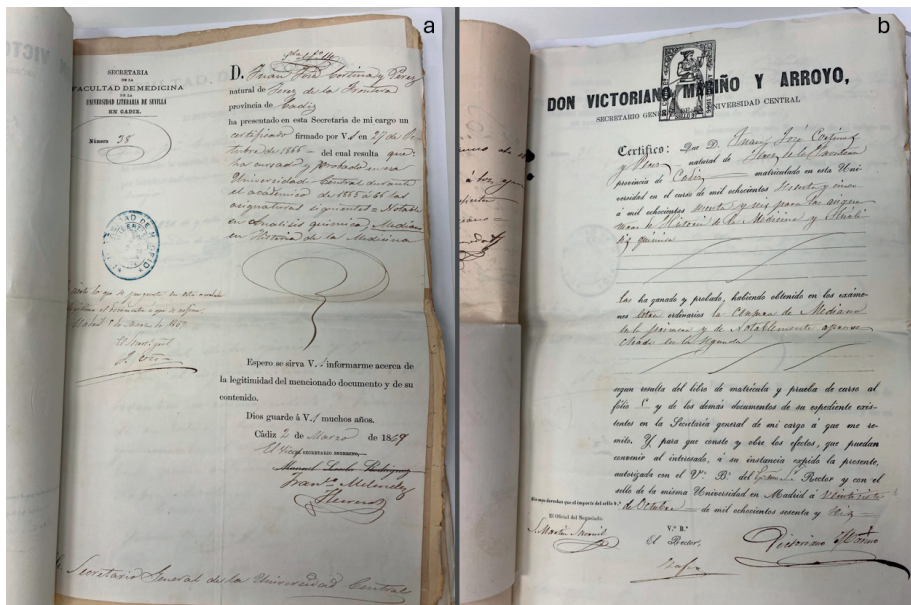 a
SECRETARIA
DE LA
FACULTAD DE MEDICINA
DE LA
UNIVERSIDAD LITERARIA DE SEVILLA
EN CADIZ.
Número 38
D. Juan José Cortina y Perez
natural de Jerez de la Frontera
provincia de Cadiz
ha presentado en esta Secretaria de mi cargo un
certificado firmado por V.S en 27 de Oc-
tubre de 1866 del cual resulta que
ha cursado y probado en esa
Universidad Central durante
el académico de 1865 á 66 las
asignaturas siguientes = Notable
en Analisis quimica, Mediano
en Historia de la Medicina
Espero se sirva V. informarme acerca de
la legitimidad del mencionado documento y de su
contenido.
Dios guarde á V. muchos años.
Cádiz 2 de Marzo de 1869
El Vice SECRETARIO INTERINO
Franco Melendez
Herrera
Secretario General de la Universidad Central
b
DON VICTORIANO MARIÑO Y ARROYO,
SECRETARIO GENERAL DE LA UNIVERSIDAD CENTRAL
Certifico: Que D. Juan José Cortina
y Perez natural de Jerez de la Frontera
provincia de Cadiz matriculado en esta Uni-
versidad en el curso de mil ochocientos sesenta y cinco
á mil ochocientos sesenta y seis para las asigna-
turas de Historia de la Medicina y Análi-
sis quimica
Las ha ganado y probado, habiendo obtenido en los exáme-
nes ordinarios la censura de Mediano
en la primera y de Notablemente aprove-
chado en la segunda
segun resulta del libro de matrícula y prueba de curso al
fólio y de los demás documentos de su espediente exis-
tentes en la Secretaría general de mi cargo á que me re-
mito. Y para que conste y obre los efectos, que puedan
convenir al interesado, á su instancia expido la presente,
autorizada con el V.º B.º del Rector y con el
sello de la misma Universidad en Madrid á veintisiete
de Octubre de mil ochocientos sesenta y seis
Sin mas derechos que el importe del sello
El Oficial del Negociado.
V.º B.º
El Rector,
Victoriano Mariño